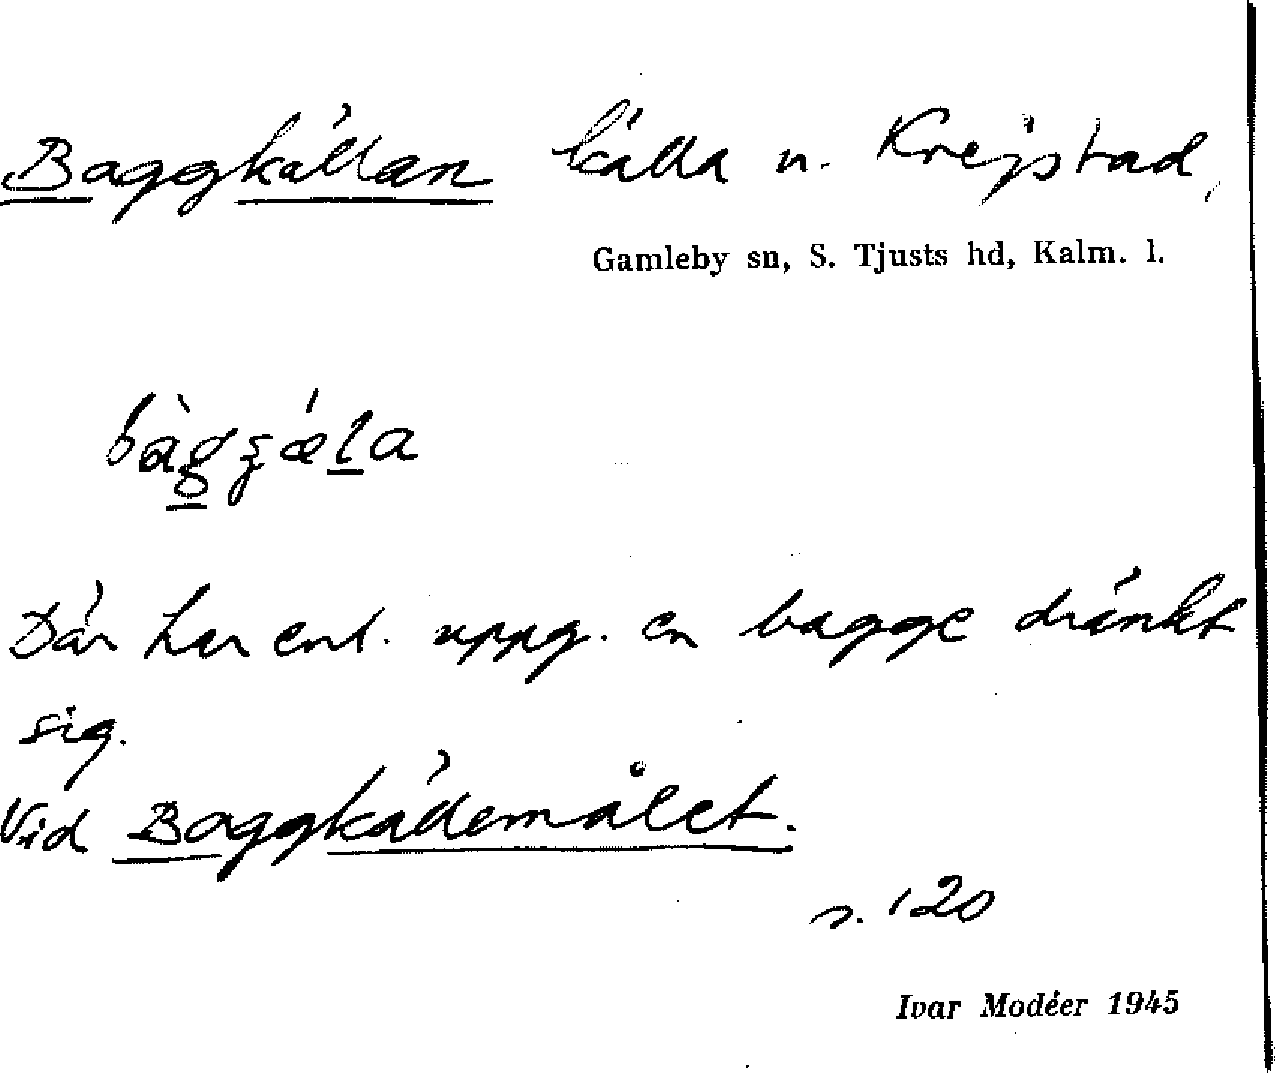 Baggkällan källa n. Krejstad,
Gamleby sn, S. Tjusts hd, Kalm. l.
Där har enl. uppg. en bagge dränkt
sig.
Vid Baggkällemålet.
s. 120
Ivar Modéer 1945